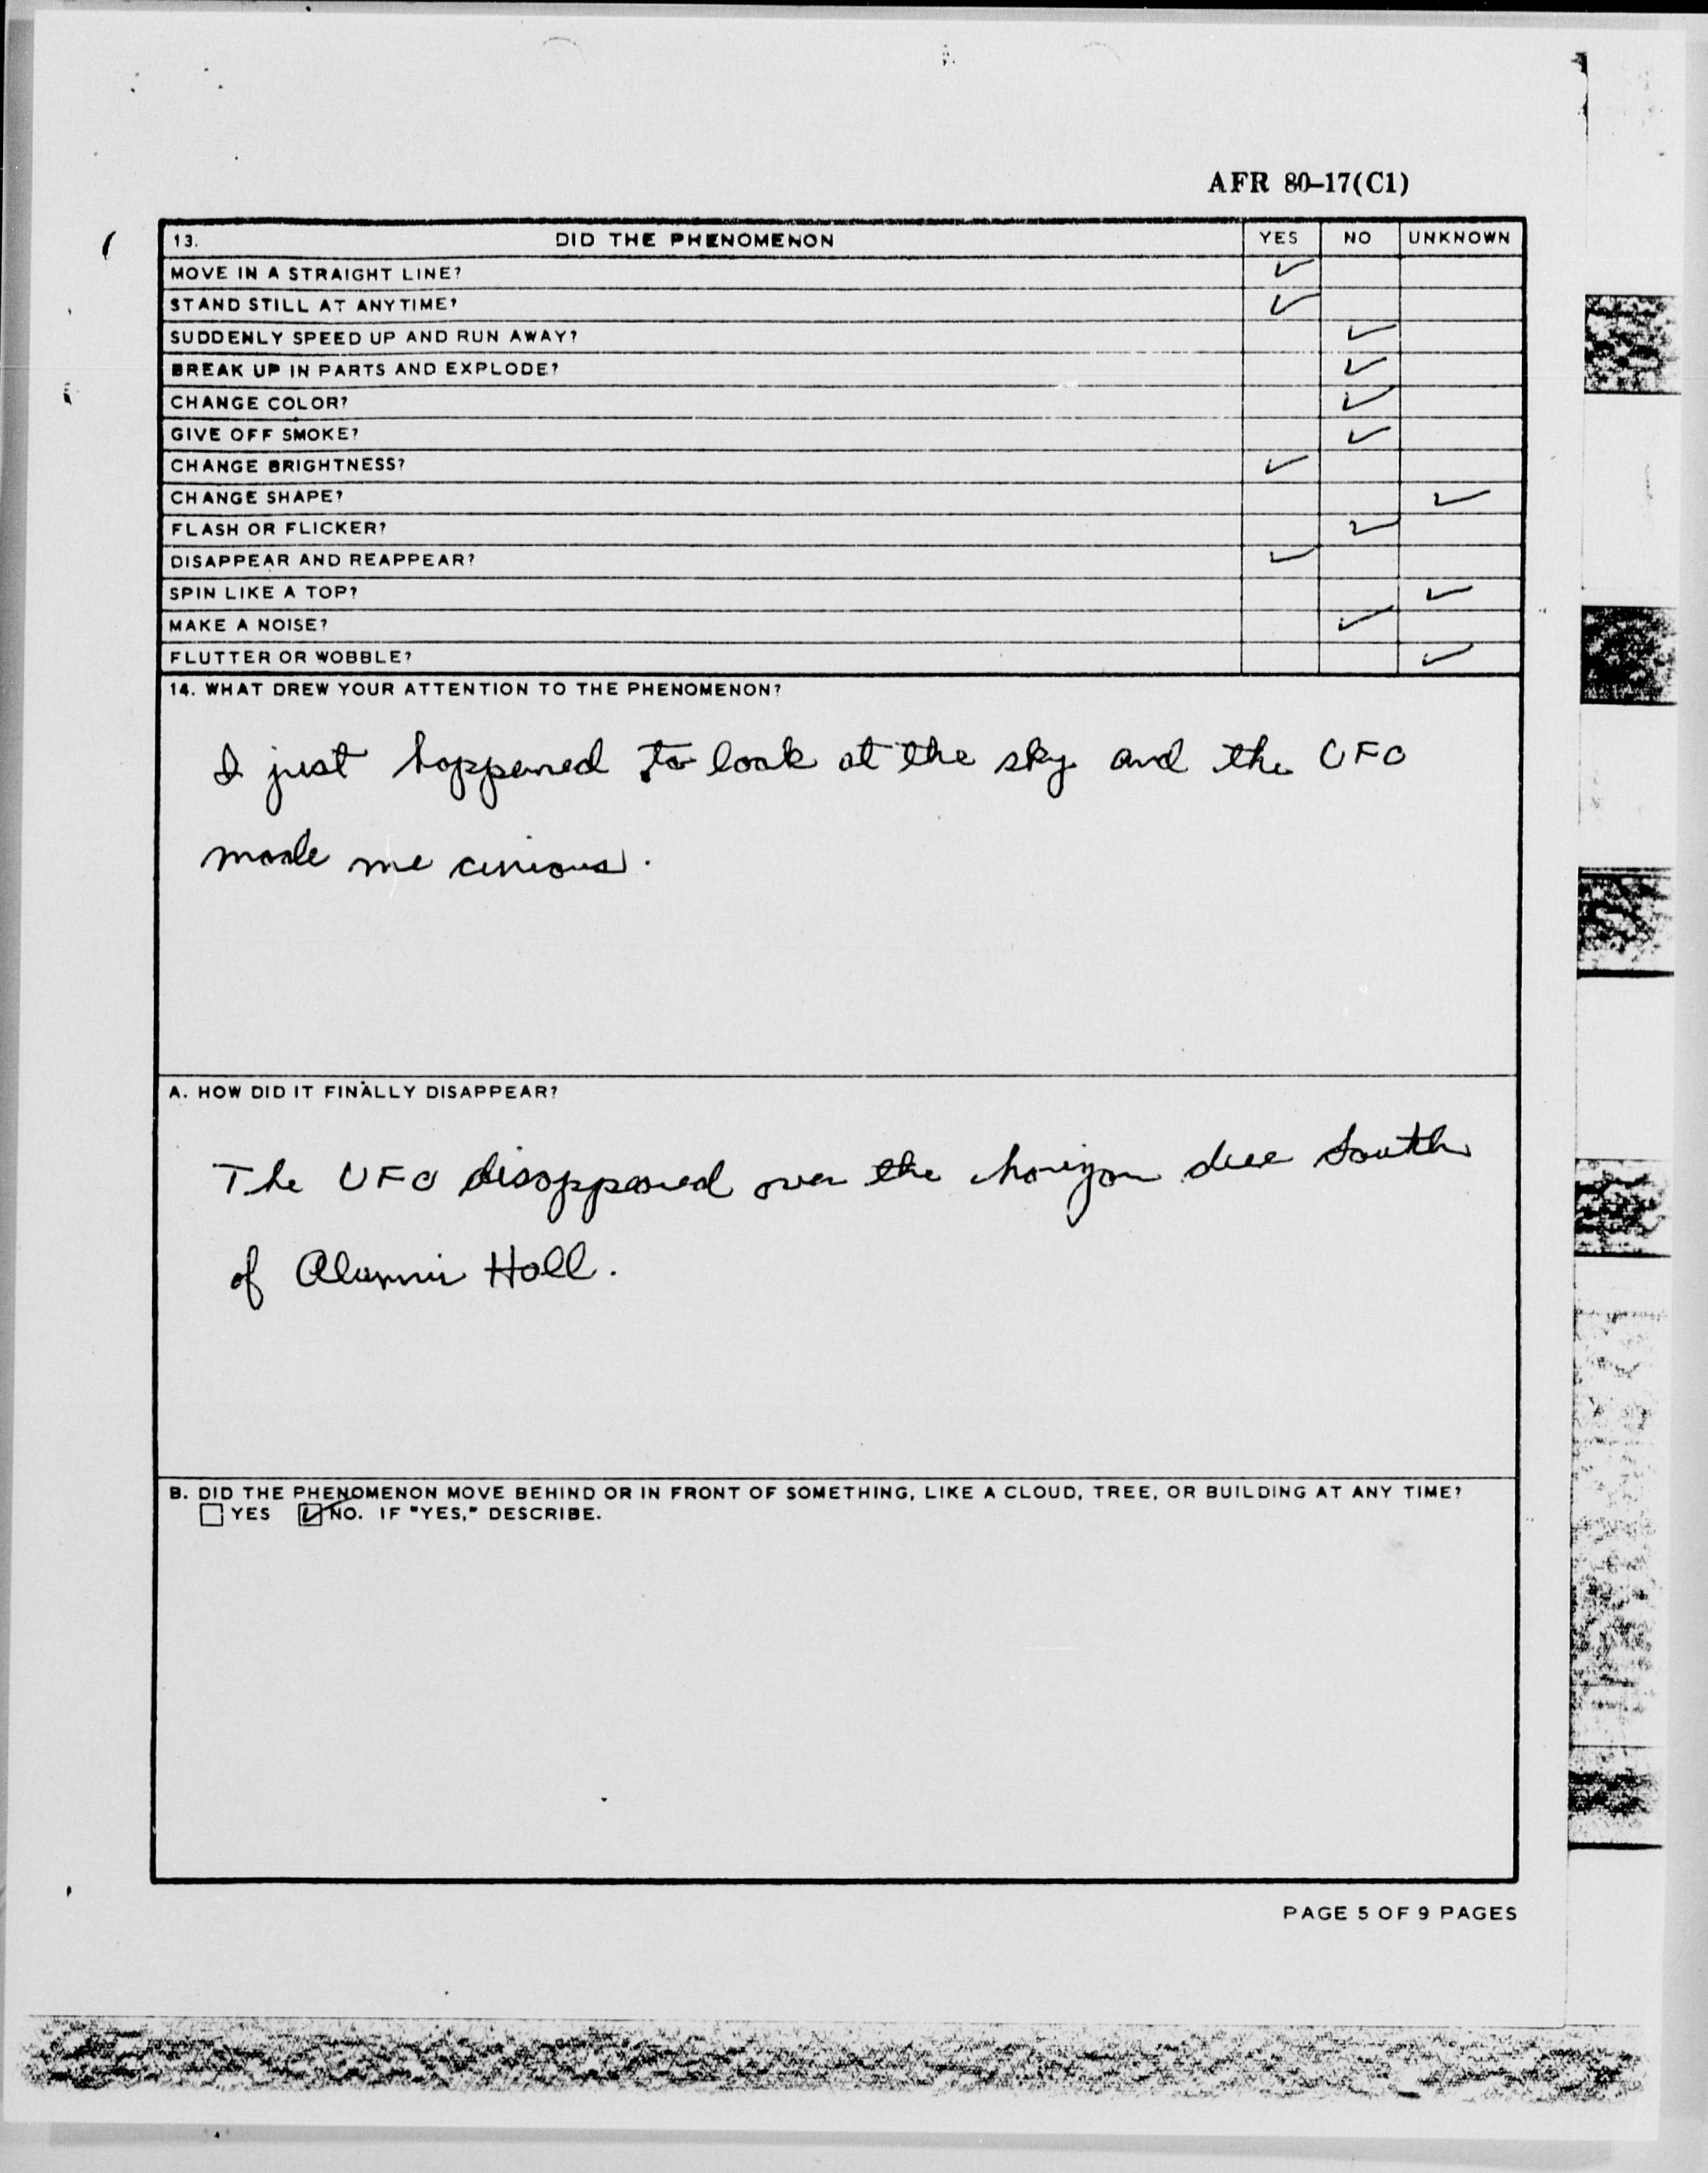 AFR 80-17(C1)
13. DID THE PHENOMENON YES NO UNKNOWN
MOVE IN A STRAIGHT LINE? ✓
STAND STILL AT ANYTIME? ✓
SUDDENLY SPEED UP AND RUN AWAY? ✓
BREAK UP IN PARTS AND EXPLODE? ✓
CHANGE COLOR? ✓
GIVE OFF SMOKE? ✓
CHANGE BRIGHTNESS? ✓
CHANGE SHAPE? ✓
FLASH OR FLICKER? ✓
DISAPPEAR AND REAPPEAR? ✓
SPIN LIKE A TOP? ✓
MAKE A NOISE? ✓
FLUTTER OR WOBBLE? ✓
14. WHAT DREW YOUR ATTENTION TO THE PHENOMENON?
I just happened to look at the sky and the UFO
made me curious.
A. HOW DID IT FINALLY DISAPPEAR?
The UFO disappeared over the horizon due South
of Alumni Hall.
B. DID THE PHENOMENON MOVE BEHIND OR IN FRONT OF SOMETHING, LIKE A CLOUD, TREE, OR BUILDING AT ANY TIME?
☐ YES ☑ NO. IF "YES," DESCRIBE.
PAGE 5 OF 9 PAGES